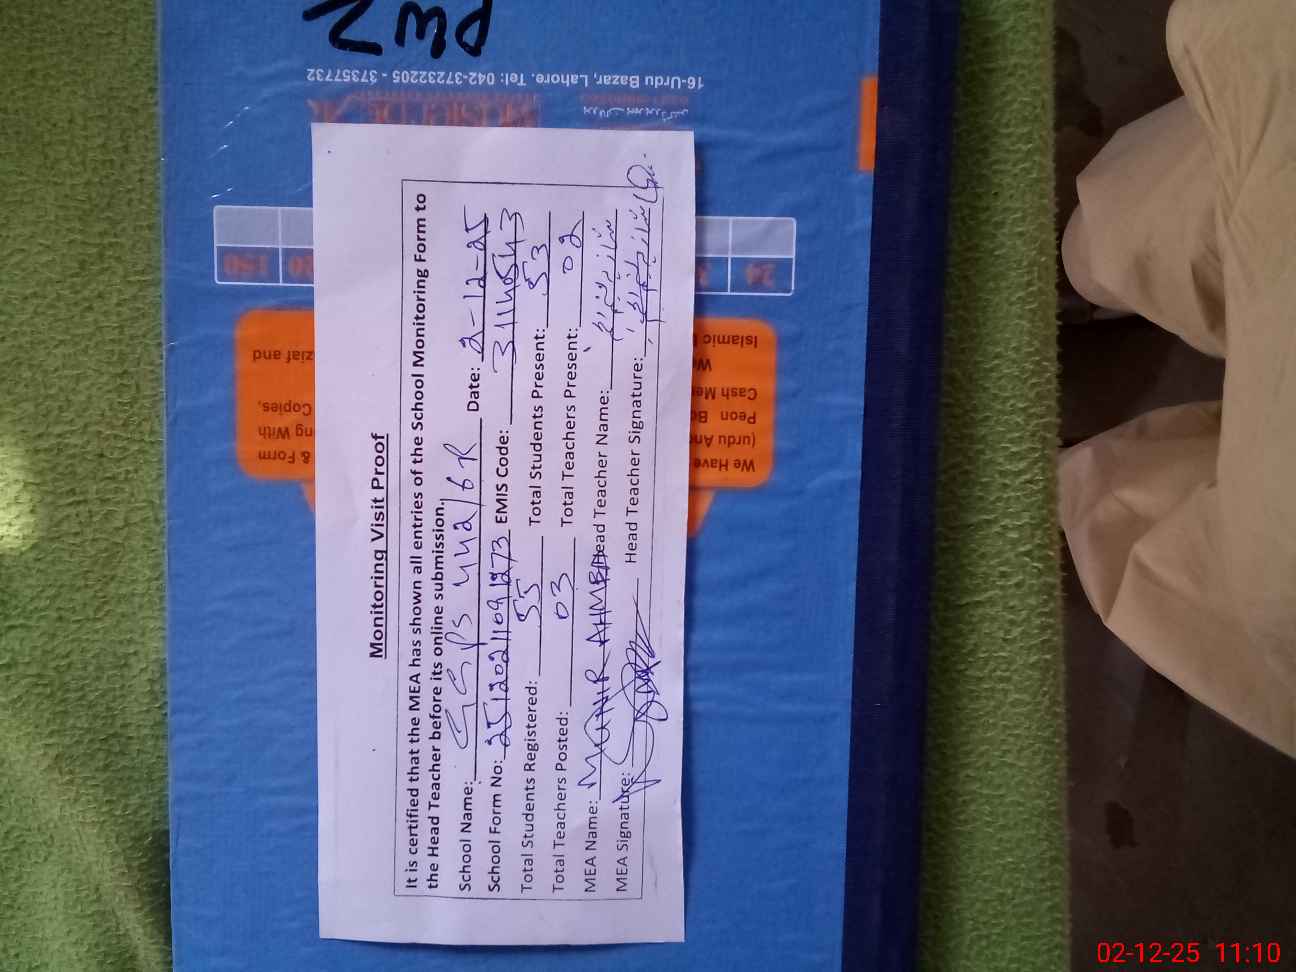 Monitoring Visit Proof
It is certified that the MEA has shown all entries of the School Monitoring Form to
the Head Teacher before its online submission.
School Name: GGPS 442/6R Date: 2-12-25
School Form No: 25120211091273 EMIS Code: 31140543
Total Students Registered: 55 Total Students Present: 53
Total Teachers Posted: 03 Total Teachers Present: 02
MEA Name: MUNIR AHMED Head Teacher Name:
MEA Signature: Head Teacher Signature:
16-Urdu Bazar, Lahore. Tel: 042-37232205 - 37357732
150
24
We Have
(urdu An
Peon Bo
Cash Me
Islamic
& Form
ng With
Copies,
ziaf and
02-12-25 11:10